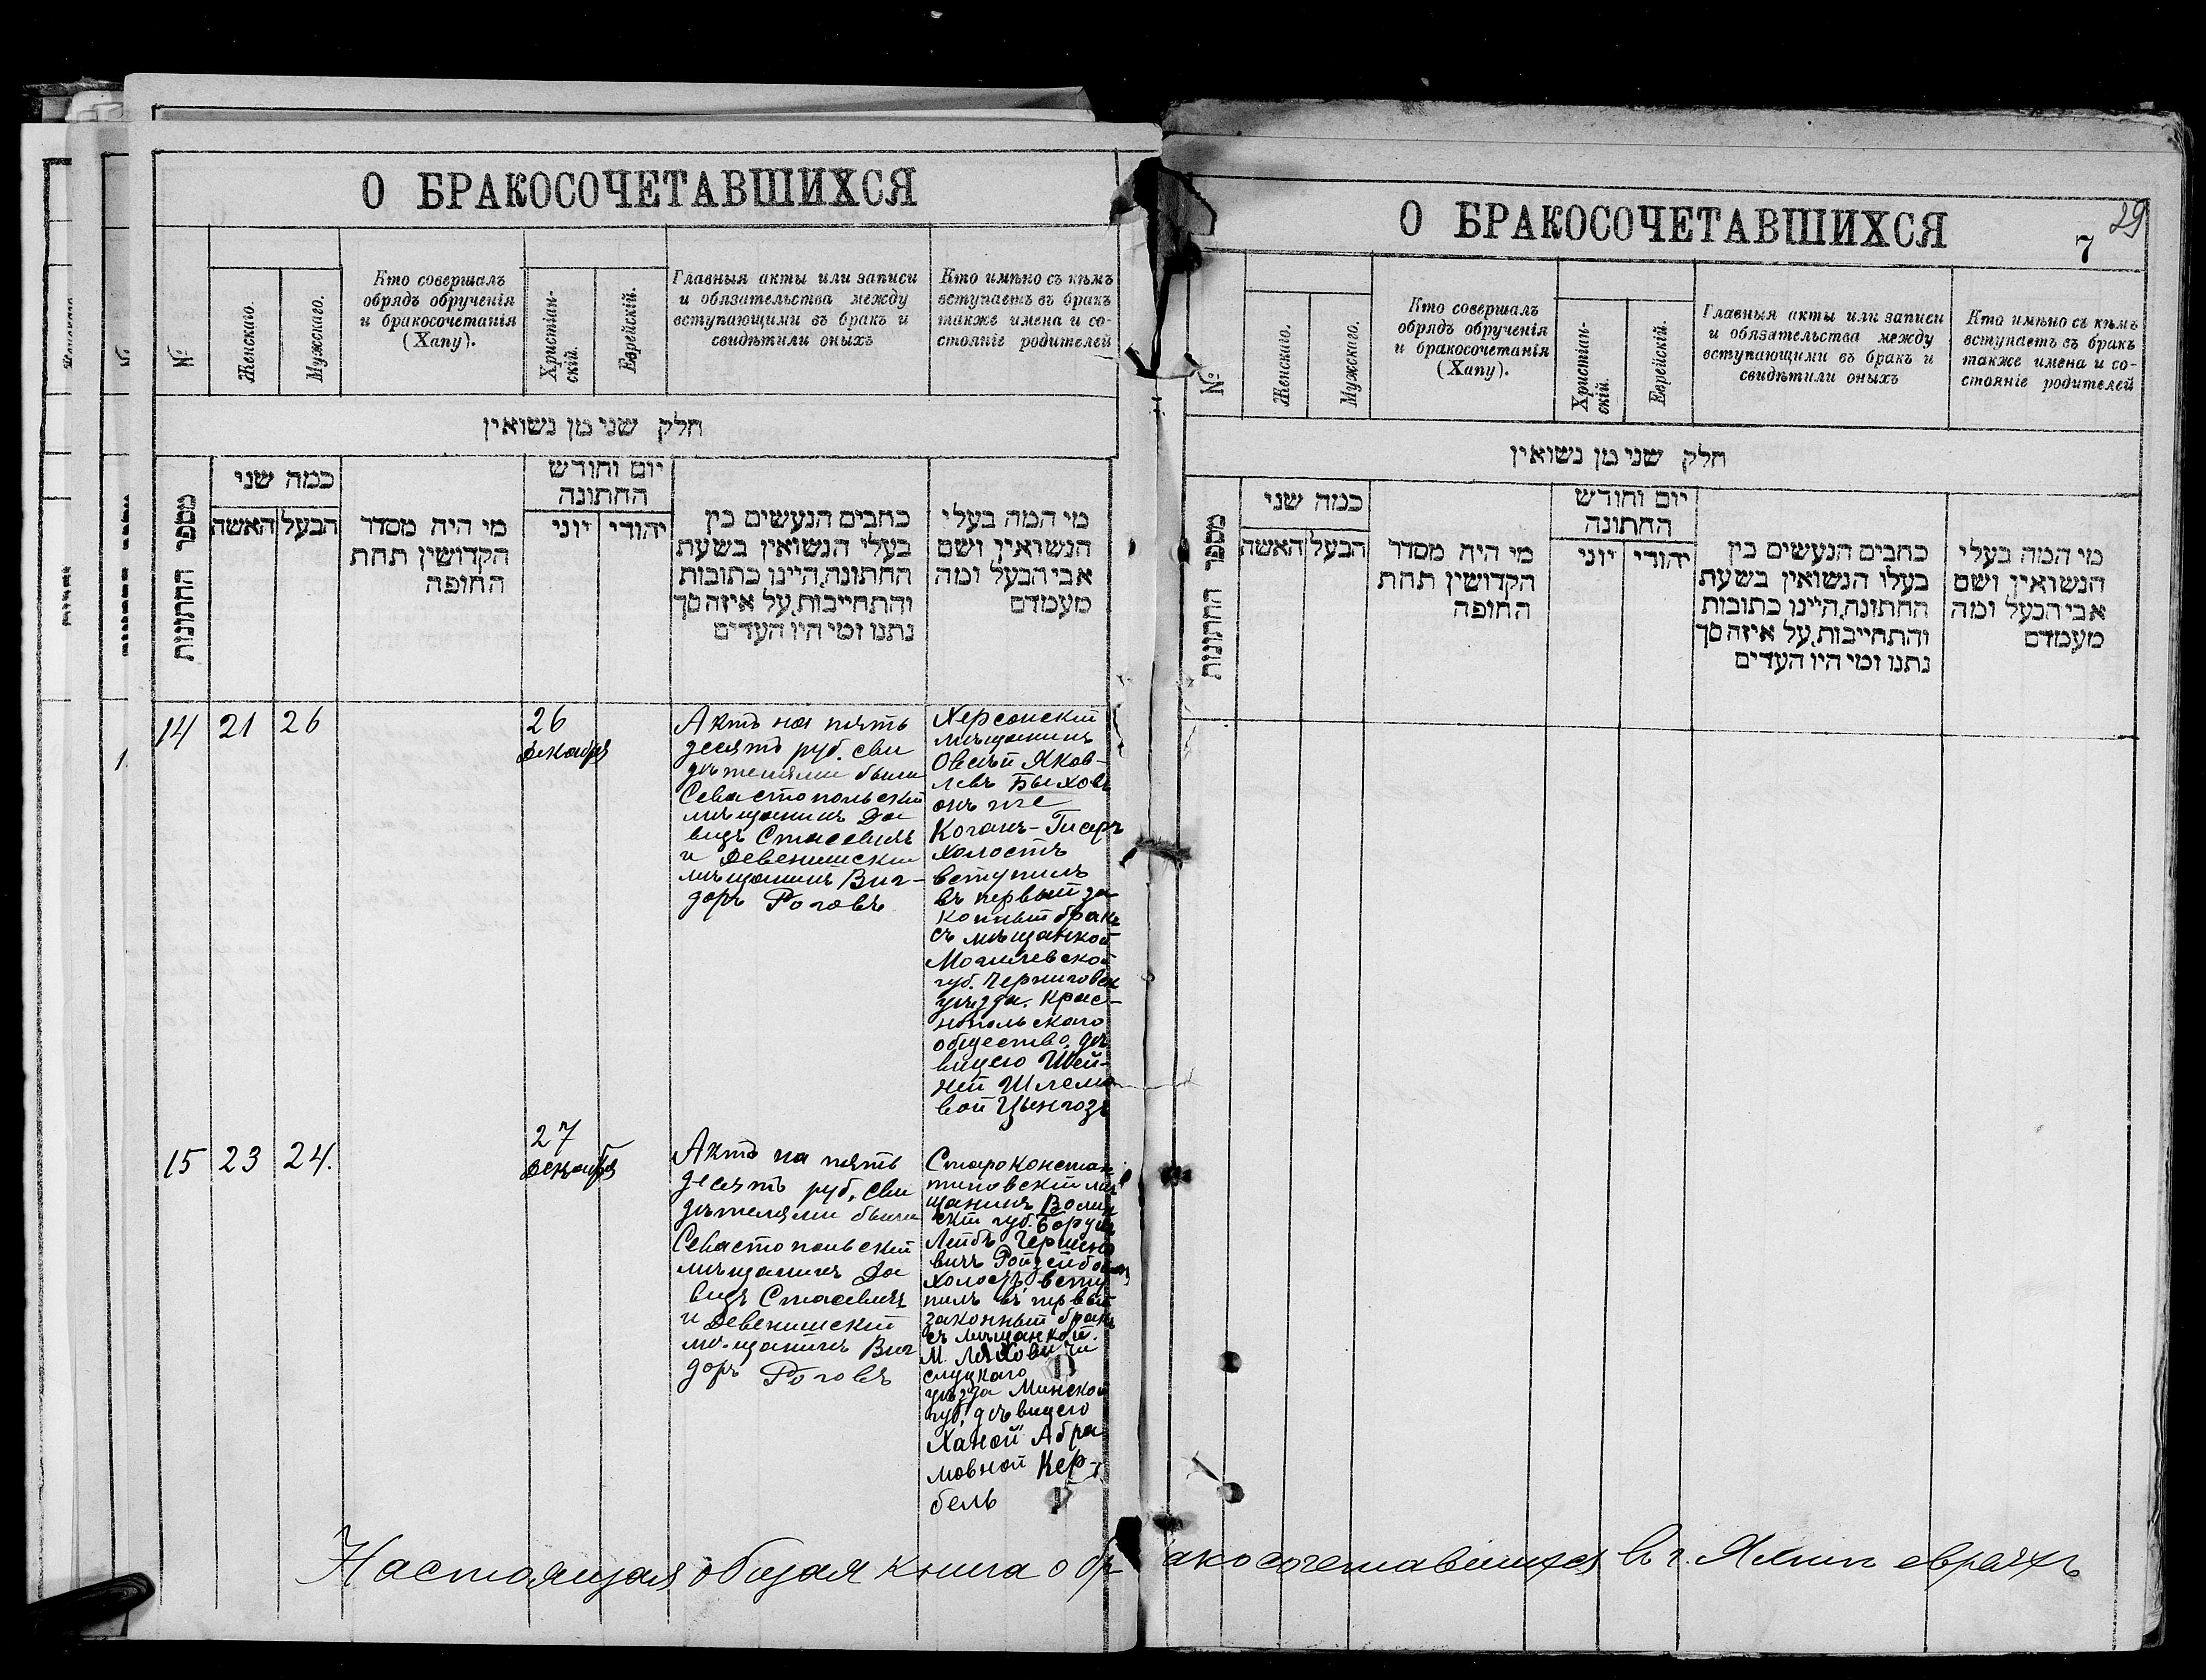 О БРАКОСОЧЕТАВШИХСЯ
№
Женскаго.
Мужскаго.
Кто совершалъ
обрядъ обрученія
и бракосочетанія
(Хапу).
Христіан-
скій.
Еврейскій.
Главныя акты или записи
и обязательства между
вступающими въ бракъ и
свидѣтили оныхъ
Кто имѣно съ кѣмъ
вступаетъ въ бракъ
также имена и со-
стояніе родителей
חלק שני מן נשואין
מספר החתונות
כמה שני
האשה
הבעל
מי היה מסדר
הקדושין תחת
החופה
יום וחודש
החתונה
יוני
יהודי
כתבים הנעשים בין
בעלי הנשואין בשעת
החתונה, היינו כתובות
והתחייבות, על איזה סך
נתנו ומי היו העדים
מי המה בעלי
הנשואין ושם
אבי הבעל ומה
מעמדם
14
21
26
26
декабря
Актъ на пять
десятъ руб. сви
дѣтелями были
Севастопольскій
мѣщанинъ Да
видъ Стасевичъ
и Девенишскій
мѣщанинъ Виг-
доръ Роговъ
Херсонскій
мѣщанинъ
Овсѣй Яков-
левъ Быховъ
онъ же
Коганъ-Гисеръ
холостъ
вступилъ
въ первый за
конный бракъ
съ мѣщанкой
Могилевской
губ. Чериковск
уѣзда. Крас-
нопольскаго
общество. дѣ
вицею Шей-
ней Шлемо
вой
15
23
24.
27
декабря
Актъ на пять
десятъ руб. сви
дѣтелями были
Севастопольскій
мѣщанинъ Да
видъ Стасевичъ
и Девенишскій
мѣщанинъ Виг
доръ Роговъ
Староконстан
тиновскій мѣ
щанинъ Волин
скій губ. Борухъ
Лейбъ Гершко
вичъ
холостъ всту
пилъ въ первый
законный бракъ
съ мѣщанкой.
М. Ляховичи
слуцкаго
уѣзда Минской
губ. дѣвицею
Ханой Абра
мовной Кер-
бель
Настоящая общая книга о бр
О БРАКОСОЧЕТАВШИХСЯ
7
29
№
Женскаго.
Мужскаго.
Кто совершалъ
обрядъ обрученія
и бракосочетанія
(Хапу).
Христіан-
скій.
Еврейскій.
Главныя акты или записи
и обязательства между
вступающими въ бракъ и
свидѣтили оныхъ
Кто имѣно съ кѣмъ
вступаетъ въ бракъ
также имена и со-
стояніе родителей
חלק שני מן נשואין
מספר החתונות
כמה שני
האשה
הבעל
מי היה מסדר
הקדושין תחת
החופה
יום וחודש
החתונה
יוני
יהודי
כתבים הנעשים בין
בעלי הנשואין בשעת
החתונה, היינו כתובות
והתחייבות, על איזה סך
נתנו ומי היו העדים
מי המה בעלי
הנשואין ושם
אבי הבעל ומה
מעמדם
акосочетавшихся въ г. Ялтѣ евреяхъ